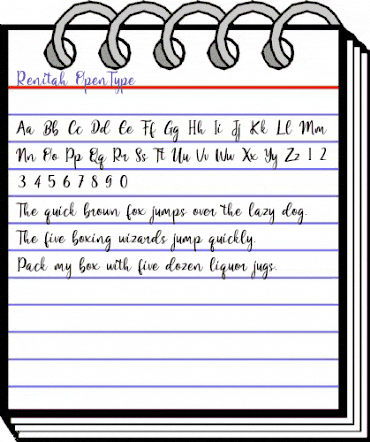 Renitah OpenType
Aa Bb Cc Dd Ee Ff Gg Hh Ii Jj Kk Ll Mm
Nn Oo Pp Qq Rr Ss Tt Uu Vv Ww Xx Yy Zz 1 2
3 4 5 6 7 8 9 0
The quick brown fox jumps over the lazy dog.
The five boxing wizards jump quickly.
Pack my box with five dozen liquor jugs.